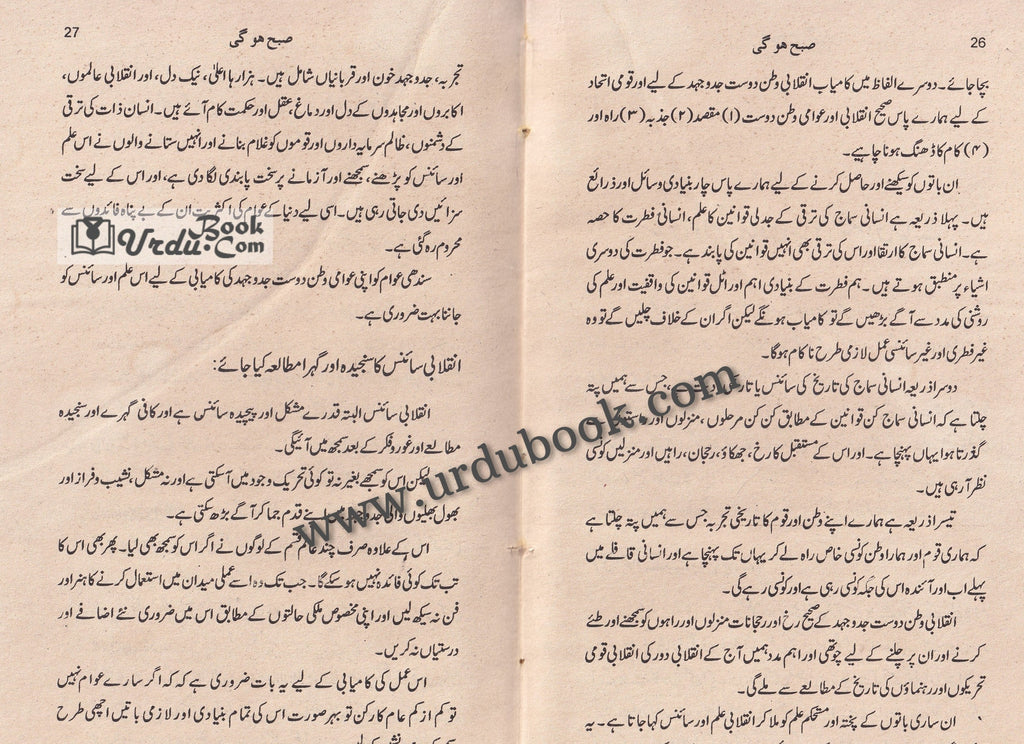 26
صبح ھو گی
بچا جائے۔ دوسرے الفاظ میں کامیاب انقلابی وطن دوست جدوجہد کے لیے اور قومی اتحاد
کے لیے ہمارے پاس صحیح انقلابی اور عوامی وطن دوست (۱) مقصد (۲) جذبہ (۳) راہ اور
(۴) کام کا ڈھنگ ہونا چاہیے۔
اِن باتوں کو سیکھنے اور حاصل کرنے کے لیے ہمارے پاس چار بنیادی وسائل اور ذرائع
ہیں۔ پہلا ذریعہ ہے انسانی سماج کی ترقی کے جدلی قوانین کا علم، انسانی فطرت کا حصہ
ہے۔ انسانی سماج کا ارتقا اور اس کی ترقی بھی انہیں قوانین کی پابند ہے۔ جو فطرت کی دوسری
اشیاء پر منطبق ہوتے ہیں۔ ہم فطرت کے بنیادی اہم اور اٹل قوانین کی واقفیت اور علم کی
روشنی کی مدد سے آگے بڑھیں گے تو کامیاب ہونگے لیکن اگر ان کے خلاف چلیں گے تو وہ
غیر فطری اور غیر سائنسی عمل لازمی طرح ناکام ہوگا۔
دوسرا ذریعہ انسانی سماج کی تاریخ کی سائنس یا جس سے ہمیں پتہ
چلتا ہے کہ انسانی سماج کن قوانین کے مطابق کن کن مرحلوں، منزلوں اور
گذرتا ہوا یہاں پہنچا ہے۔ اور اس کے مستقبل کا رخ، جھکاؤ، رجحان، راہیں اور منزلیں کونسی
نظر آرہی ہیں۔
تیسرا ذریعہ ہے ہمارے اپنے وطن اور قوم کا تاریخی تجربہ جس سے ہمیں پتہ چلتا ہے
کہ ہماری قوم اور ہمارا وطن کونسی خاص راہ لے کر یہاں تک پہنچا ہے اور انسانی قافلے میں
پہلے اب اور آئندہ اس کی جگہ کونسی رہی ہے اور کونسی رہے گی۔
انقلابی وطن دوست جدوجہد کے صحیح رخ اور رجحانات منزلوں اور راہوں کو سمجھنے اور طئے
کرنے اور ان پر چلنے کے لیے چوتھی اور اہم مدد ہمیں آج کے انقلابی دور کی انقلابی قومی
تحریکوں اور رہنماؤں کی تاریخ کے مطالعے سے ملے گی۔
ان ساری باتوں کے پختہ اور مستحکم علم کو ملا کر انقلابی علم اور سائنس کہا جاتا ہے۔ یہ
27
صبح ھو گی
تجربہ، جدوجہد خون اور قربانیاں شامل ہیں۔ ہزارہا اعلیٰ، نیک دل، اور انقلابی عالموں،
اکابروں اور مجاہدوں کے دل اور دماغ، عقل اور حکمت کام آئے ہیں۔ انسان ذات کی ترقی
کے دشمنوں، ظالم سرمایہ داروں اور قوموں کو غلام بنانے اور انہیں ستانے والوں نے اس علم
اور سائنس کو پڑھنے، سمجھنے اور آزمانے پر سخت پابندی لگا دی ہے، اور اس کے لیے سخت
سزائیں دی جاتی رہی ہیں۔ اسی لیے دنیا کے عوام کی اکثریت ان کے بے پناہ فائدوں سے
محروم رہ گئی ہے۔
سندھی عوام کو اپنی عوامی وطن دوست جدوجہد کی کامیابی کے لیے اس علم اور سائنس کو
جاننا بہت ضروری ہے۔
انقلابی سائنس کا سنجیدہ اور گہرا مطالعہ کیا جائے:
انقلابی سائنس البتہ قدرے مشکل اور پیچیدہ سائنس ہے اور کافی گہرے اور سنجیدہ
مطالعے اور غور و فکر کے بعد سمجھ میں آئیگی۔
لیکن اس کو سمجھے بغیر نہ تو کوئی تحریک وجود میں آسکتی ہے اور نہ مشکل، نشیب و فراز اور
بھول بھلیوں والی قدم جما کر آگے بڑھ سکتی ہے۔
اس کے علاوہ صرف چند عالم قسم کے لوگوں نے اگر اس کو سمجھ بھی لیا۔ پھر بھی اس کا
تب تک کوئی فائدہ نہیں ہو سکے گا۔ جب تک وہ اسے عملی میدان میں استعمال کرنے کا ہنر اور
فن نہ سیکھ لیں اور اپنی مخصوص ملکی حالتوں کے مطابق اس میں ضروری نئے اضافے اور
درستیاں نہ کریں۔
اس عمل کی کامیابی کے لیے یہ بات ضروری ہے کہ کہ اگر سارے عوام نہیں
تو کم از کم عام کارکن تو بہر صورت اس کی تمام بنیادی اور لازمی باتیں اچھی طرح
Urdu Book.Com
www.urdubook.com